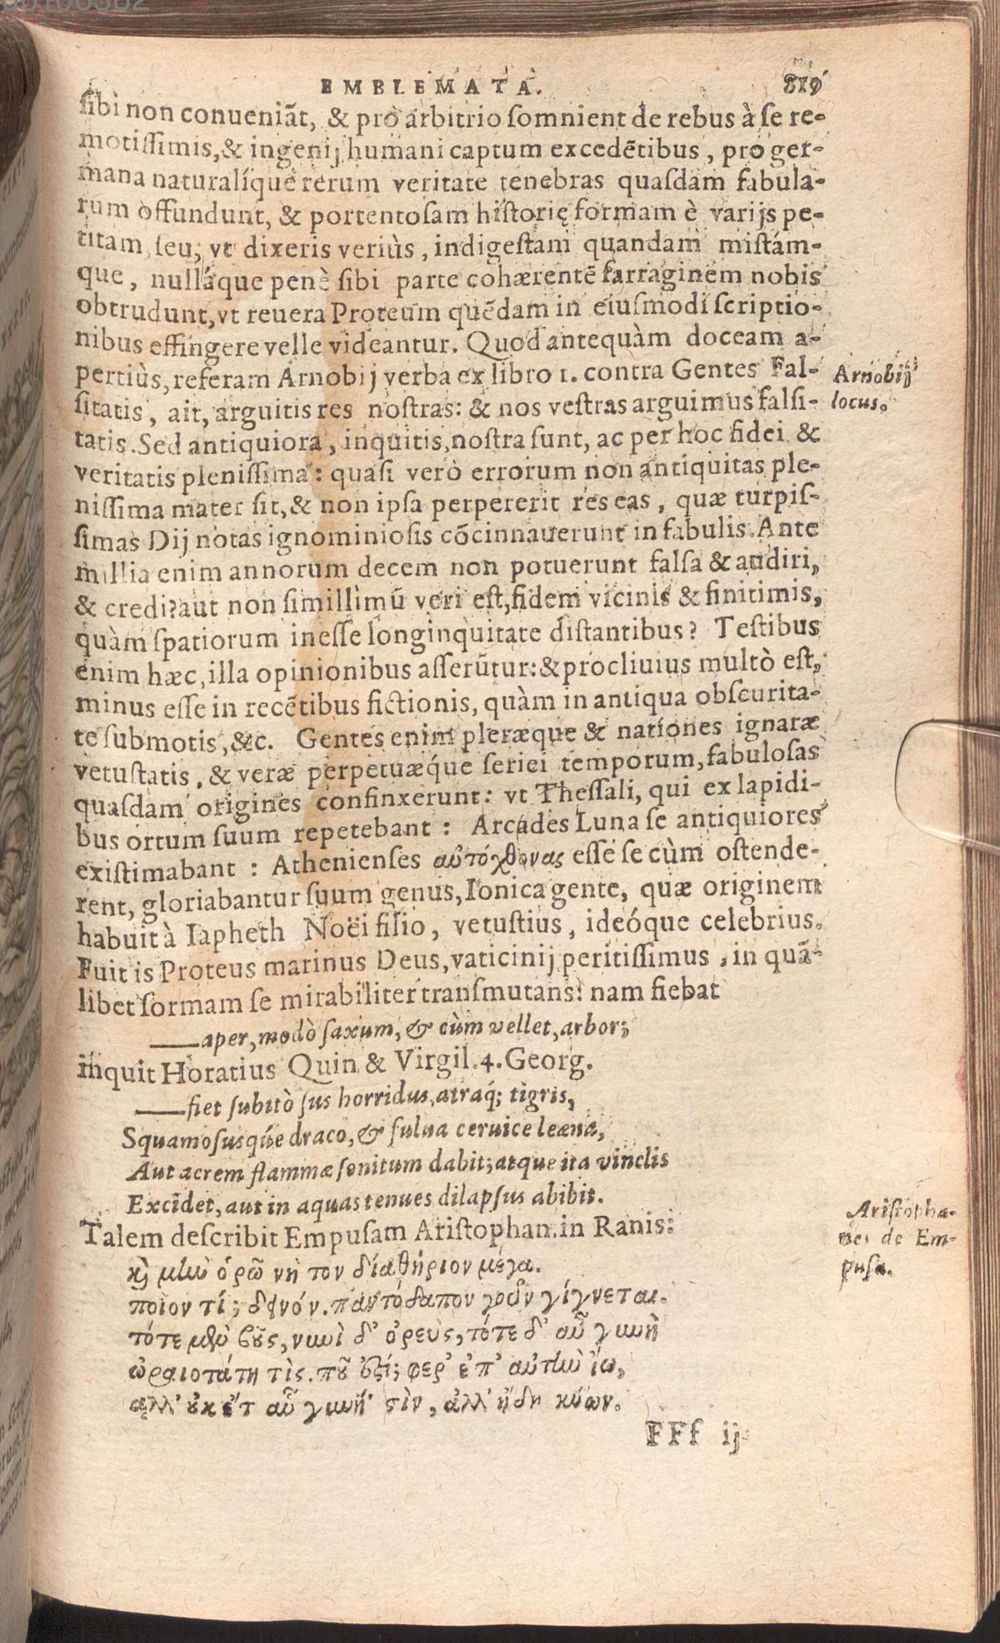 EMBLEMATA. 819
sibi non conueniãt, & pro arbitrio somnient de rebus à se re-
motissimis, & ingenij humani captum excedẽtibus, pro ger-
mana naturalíque rerum veritate tenebras quasdam fabula-
rum offundunt, & portentosam historię formam è varijs pe-
titam, seu, vt dixeris veriùs, indigestam quandam mistám-
que, nulláque penè sibi parte cohærentẽ farraginem nobis
obtrudunt, vt reuera Proteum quẽdam in eiusmodi scriptio-
nibus effingere velle videantur. Quod antequàm doceam a-
pertiùs, referam Arnobij verba ex libro 1. contra Gentes Fal-
Arnobij
sitatis, ait, arguitis res nostras: & nos vestras arguimus falsi-
locus.
tatis. Sed antiquiora, inquitis, nostra sunt, ac per hoc fidei &
veritatis plenissima: quasi verò errorum non antiquitas ple-
nissima mater sit, & non ipsa perpererit res eas, quæ turpis-
simas Dij notas ignominiosis cõcinnauerunt in fabulis. Ante
millia enim annorum decem non potuerunt falsa & audiri,
& credi? aut non simillimũ veri est, fidem vicinis & finitimis,
quàm spatiorum inesse longinquitate distantibus? Testibus
enim hæc, illa opinionibus asserũtur: & procliuius multò est,
minus esse in recẽtibus fictionis, quàm in antiqua obscurita-
te submotis, &c. Gentes enim pleræque & nationes ignaræ
vetustatis, & veræ perpetuæque seriei temporum, fabulosas
quasdam origines confinxerunt: vt Thessali, qui ex lapidi-
bus ortum suum repetebant: Arcades Luna se antiquiores
existimabant: Athenienses αὐτόχθονας esse se cùm ostende-
rent, gloriabantur suum genus, Ionica gente, quæ originem
habuit à Iapheth Noëi filio, vetustius, ideóque celebrius.
Fuit is Proteus marinus Deus, vaticinij peritissimus, in quã-
libet formam se mirabiliter transmutans: nam fiebat
—— aper, modò saxum, & cùm vellet, arbor;
inquit Horatius Quin & Virgil. 4. Georg.
—— fiet subitò sus horridus, atraq; tigris,
Squamosusque draco, & fulua ceruice leæna,
Aut acrem flammæ sonitum dabit; atque ita vinclis
Excidet, aut in aquas tenues dilapsus abibit.
Talem describit Empusam Aristophan. in Ranis:
Aristopha-
nes de Em-
pusa.
καὶ μὴν ὁρῶ νὴ τον δία θήριον μέγα.
ποῖον τί; δεινόν. παντόδαπον γοῦν γίγνεται.
τότε μὲν βοῦς, νυνὶ δ' ὀρεὺς, τότε δ' αὖ γυνὴ
ὡραιοτάτη τὶς. ποῦ ἐστί; φερ' ἐπ' αὐτὴν ἴω,
αλλ' οὐκ ἔτ αὖ γυνή' στὶν, ἀλλ' ἤδη κύων.
FFf ij